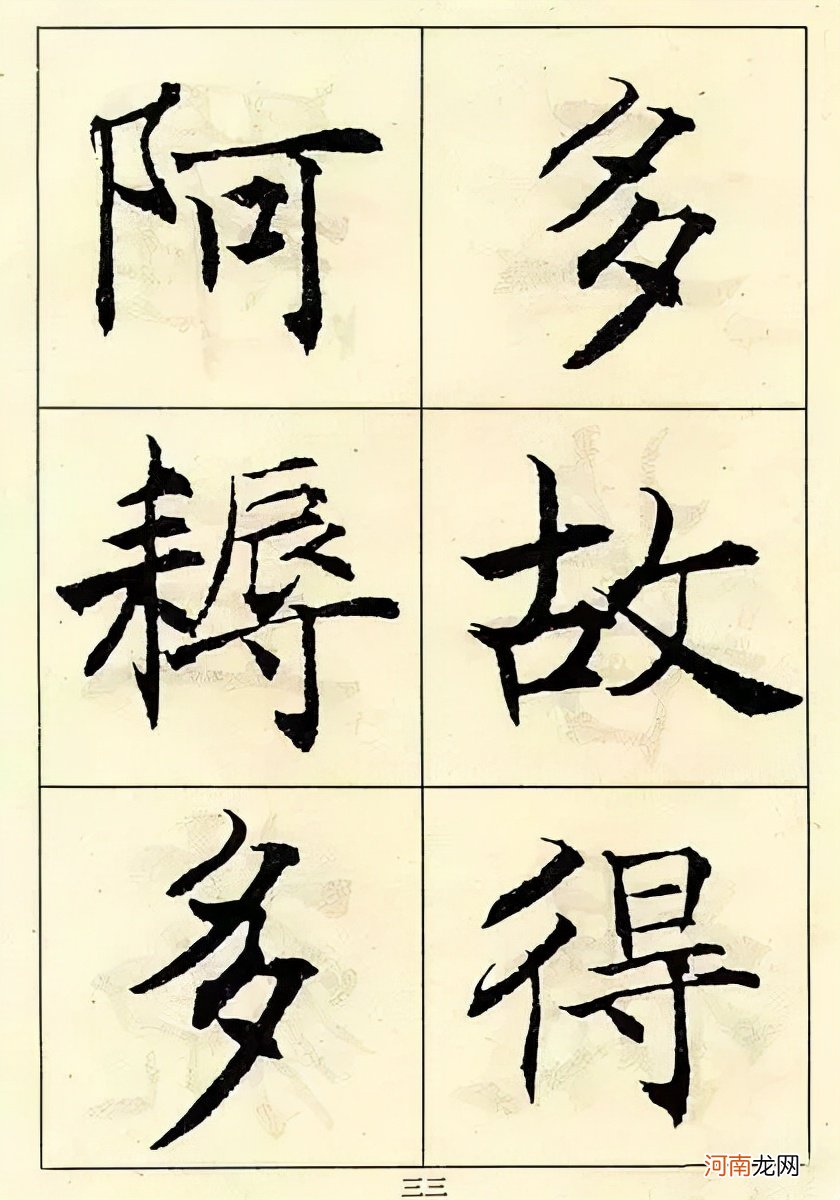 多故得
阿耨多
三三
河南龙网